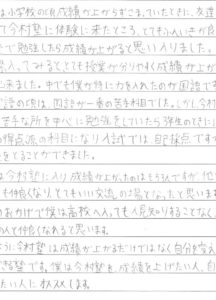 は小学校の時成績が上がらずこまっていたときに、友達
て今村塾に体験に来たところ、とてもふんいきが良
で勉強したら成績が上がると思い入りました。
塾入ってみるととても授業が分りやすく成績が上が
出来ました。中でも僕が特に力を入れたのが国語です
国語の
は、国語が一番の苦手科目でした。しかし今村
苦手な所を中心に勉強をしていたら弥生のときに
の得点源の科目になり入試では自己採点です
をとることができました。
は今村塾に入り成績が上がったのはもちろんですが他
も仲良くなり、とてもいい交流の場となったと思いま
のおかげで僕は高校へ入っても人見知りすることなく
の人と仲良くなれると思います。
ように今村塾は成績が上がるだけではなく自分を変え
きる塾です。僕は今村塾を、成績を上げたい人、自
たい人にオススメします。